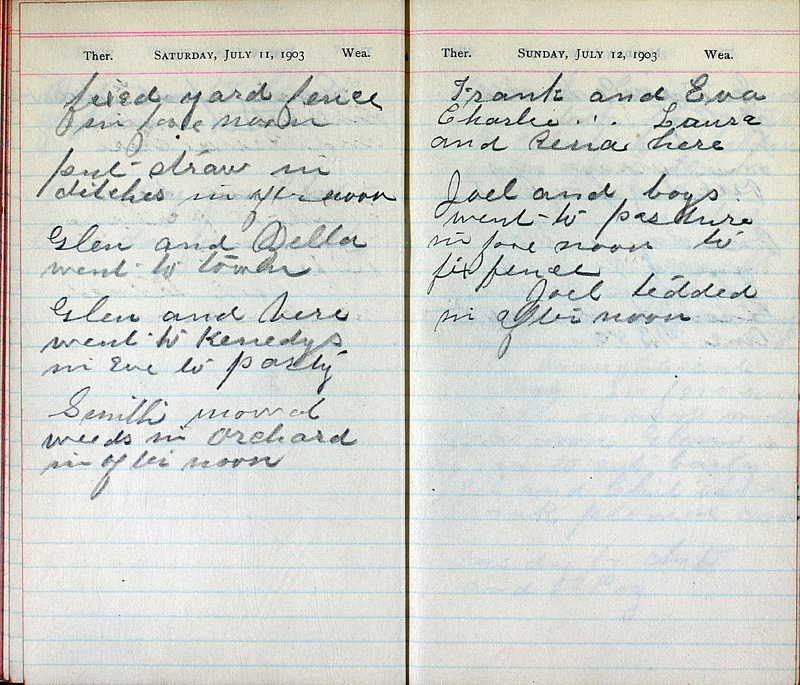 Ther. SATURDAY, JULY 11, 1903 Wea.
fixed yard fence
in fore noon
put straw in
ditches in after noon
Glen and Della
went to town
Glen and Vere
went to Kenedys
in Eve to party
Smith mowed
weeds in orchard
in after noon
Ther. SUNDAY, JULY 12, 1903 Wea.
Frank and Eva
Charlie . . . Laura
and Rena here
Joel and boys
went to pasture
in fore noon to
fix fence
Joel tedded
in after noon